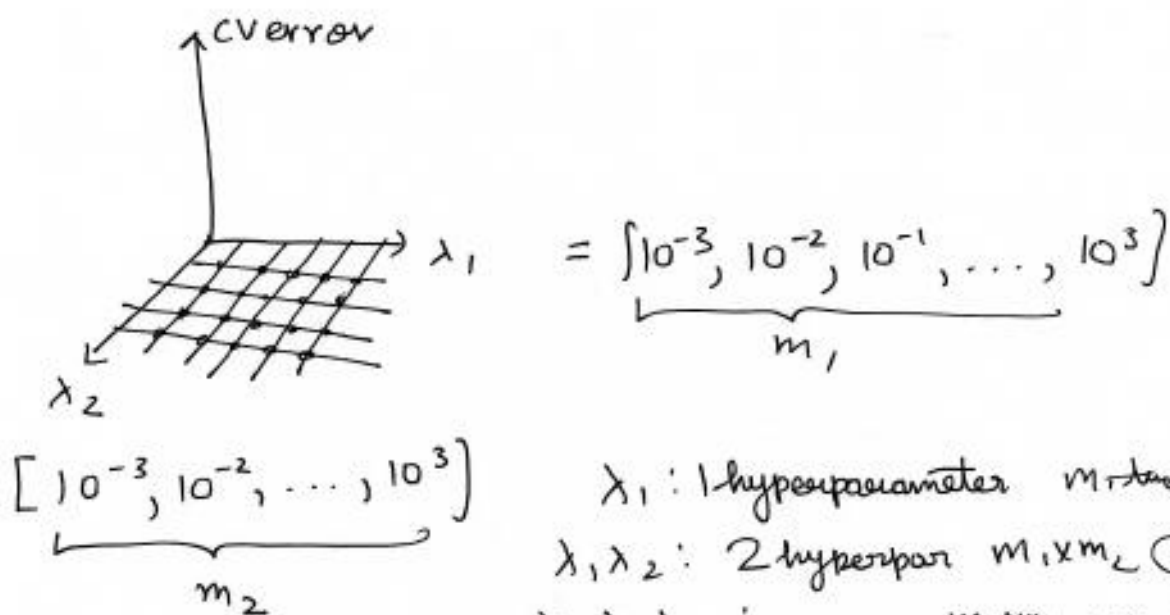 CV error
λ₁ = [10⁻³, 10⁻², 10⁻¹, ..., 10³]
m₁
λ₂
[10⁻³, 10⁻², ..., 10³]
m₂
λ₁ : 1 hyperparameter m₁
λ₁λ₂ : 2 hyperpar m₁xm₂ (